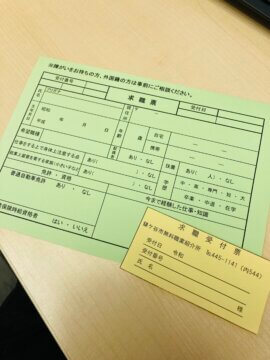 ※障がいをお持ちの方、外国籍の方は事前にご相談ください。
受付番号
求職票
受付日
フリガナ
氏名
昭和
平成
年 月 日
歳
自宅
携帯
希望職種
あり・なし
扶養
あり( 人)・なし
仕事をする上で身体上注意する点
あり( )・なし
学歴
中・高・専門・短・大
あり( )・なし
卒業・中退・在学
免許・資格
今まで経験した仕事・知識
普通自動車免許
あり・なし
はい・いいえ
求職受付票
鎌ケ谷市無料職業紹介所 ℡445-1141(内544)
受付日 令和
受付番号
氏名 様